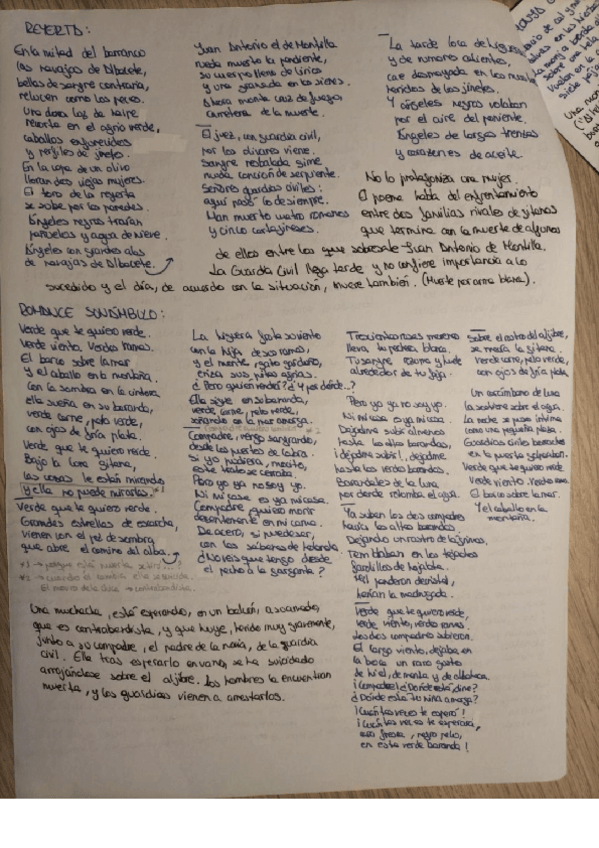 REYERTA:
En la mitad del barranco
las navajas de Albacete,
bellas de sangre contraria,
relucen como los peces.
Una dura luz de naipe
recorta en el agrio verde,
caballos enfurecidos
y perfiles de jinete.
En la copa de un olivo
lloran dos viejas mujeres.
El toro de la reyerta
se sube por las paredes.
Ángeles negros traían
pañuelos y agua de nieve.
Ángeles con grandes alas
de navajas de Albacete.
Juan Antonio el de Montilla
rueda muerto la pendiente,
su cuerpo lleno de lirios
y una granada en las sienes.
Ahora monta cruz de fuego,
carretera de la muerte.
El juez, con guardia civil,
por los olivares viene.
Sangre resbalada gime
muda canción de serpiente.
Señores guardias civiles:
aquí pasó lo de siempre.
Han muerto cuatro romanos
y cinco cartagineses.
La tarde loca de higueras
y de rumores calientes,
cae desmayada en los muslos
heridos de los jinetes.
Y ángeles negros volaban
por el aire del poniente.
Ángeles de largas trenzas
y corazones de aceite.
No lo protagoniza una mujer.
El poema habla del enfrentamiento
entre dos familias rivales de gitanos
que termina con la muerte de algunos
de ellos entre los que sobresale Juan Antonio de Montilla.
La Guardia Civil llega tarde y no confiere importancia a lo
sucedido y el día, de acuerdo con la situación, muere también. (Muerte por arma blanca).
ROMANCE SONÁMBULO:
Verde que te quiero verde.
Verde viento. Verdes ramas.
El barco sobre la mar
y el caballo en la montaña.
Con la sombra en la cintura
ella sueña en su baranda,
verde carne, pelo verde,
con ojos de fría plata.
Verde que te quiero verde.
Bajo la luna gitana,
las cosas le están mirando
y ella no puede mirarlas. *1
Verde que te quiero verde.
Grandes estrellas de escarcha,
vienen con el pez de sombra
que abre el camino del alba.
La higuera frota su viento
con la lija de sus ramas,
y el monte, gato garduño,
eriza sus pitas agrias.
¿Pero quién vendrá? ¿Y por dónde...?
Ella sigue en su baranda,
verde carne, pelo verde,
soñando en la mar amarga.
Compadre, vengo sangrando,
desde los puertos de Cabra.
Si yo pudiera, mocito,
este trato se cerraba
Pero yo ya no soy yo.
Ni mi casa es ya mi casa.
Compadre quiero morir
decentemente en mi cama.
De acero, si puede ser,
con las sábanas de holanda.
¿No ves la que tengo desde
el pecho a la garganta?
Trescientas rosas morenas
lleva tu pechera blanca.
Tu sangre rezuma y huele
alrededor de tu faja.
Pero yo ya no soy yo.
Ni mi casa es ya mi casa.
Dejadme subir al menos
hasta las altas barandas,
¡dejadme subir!, dejadme
hasta las verdes barandas.
Barandales de la luna
por donde retumba el agua.
Ya suben los dos compadres
hacia las altas barandas
Dejando un rastro de lágrimas,
Temblaban en los tejados
farolillos de hojalata.
Mil panderos de cristal,
herían la madrugada.
Verde que te quiero verde,
verde viento, verdes ramas.
Los dos compadres subieron.
El largo viento, dejaba en
la boca un raro gusto
de hiel, de menta y de albahaca.
¡Compadre! ¿Dónde está, dime?
¿Dónde está tu niña amarga?
¡Cuántas veces te esperó!
¡Cuántas veces te esperara,
cara fresca, negro pelo,
en esta verde baranda!
Sobre el rostro del aljibe,
se mecía la gitana.
Verde carne, pelo verde,
con ojos de fría plata.
Un carámbano de luna
la sostiene sobre el agua.
La noche se puso íntima
como una pequeña plaza.
Guardias civiles borrachos
en la puerta golpeaban.
Verde que te quiero verde.
Verde viento. Verdes ramas.
El barco sobre la mar.
Y el caballo en la
montaña.
Una muchacha, está esperando, en un balcón, a su amado,
que es contrabandista, y que huye, herido muy gravemente,
junto a su compadre, el padre de la novia, de la guardia
civil. Ella tras esperarlo en vano, se ha suicidado
arrojándose sobre el aljibe. Los hombres la encuentran
muerta, y los guardias vienen a arrestarlos.